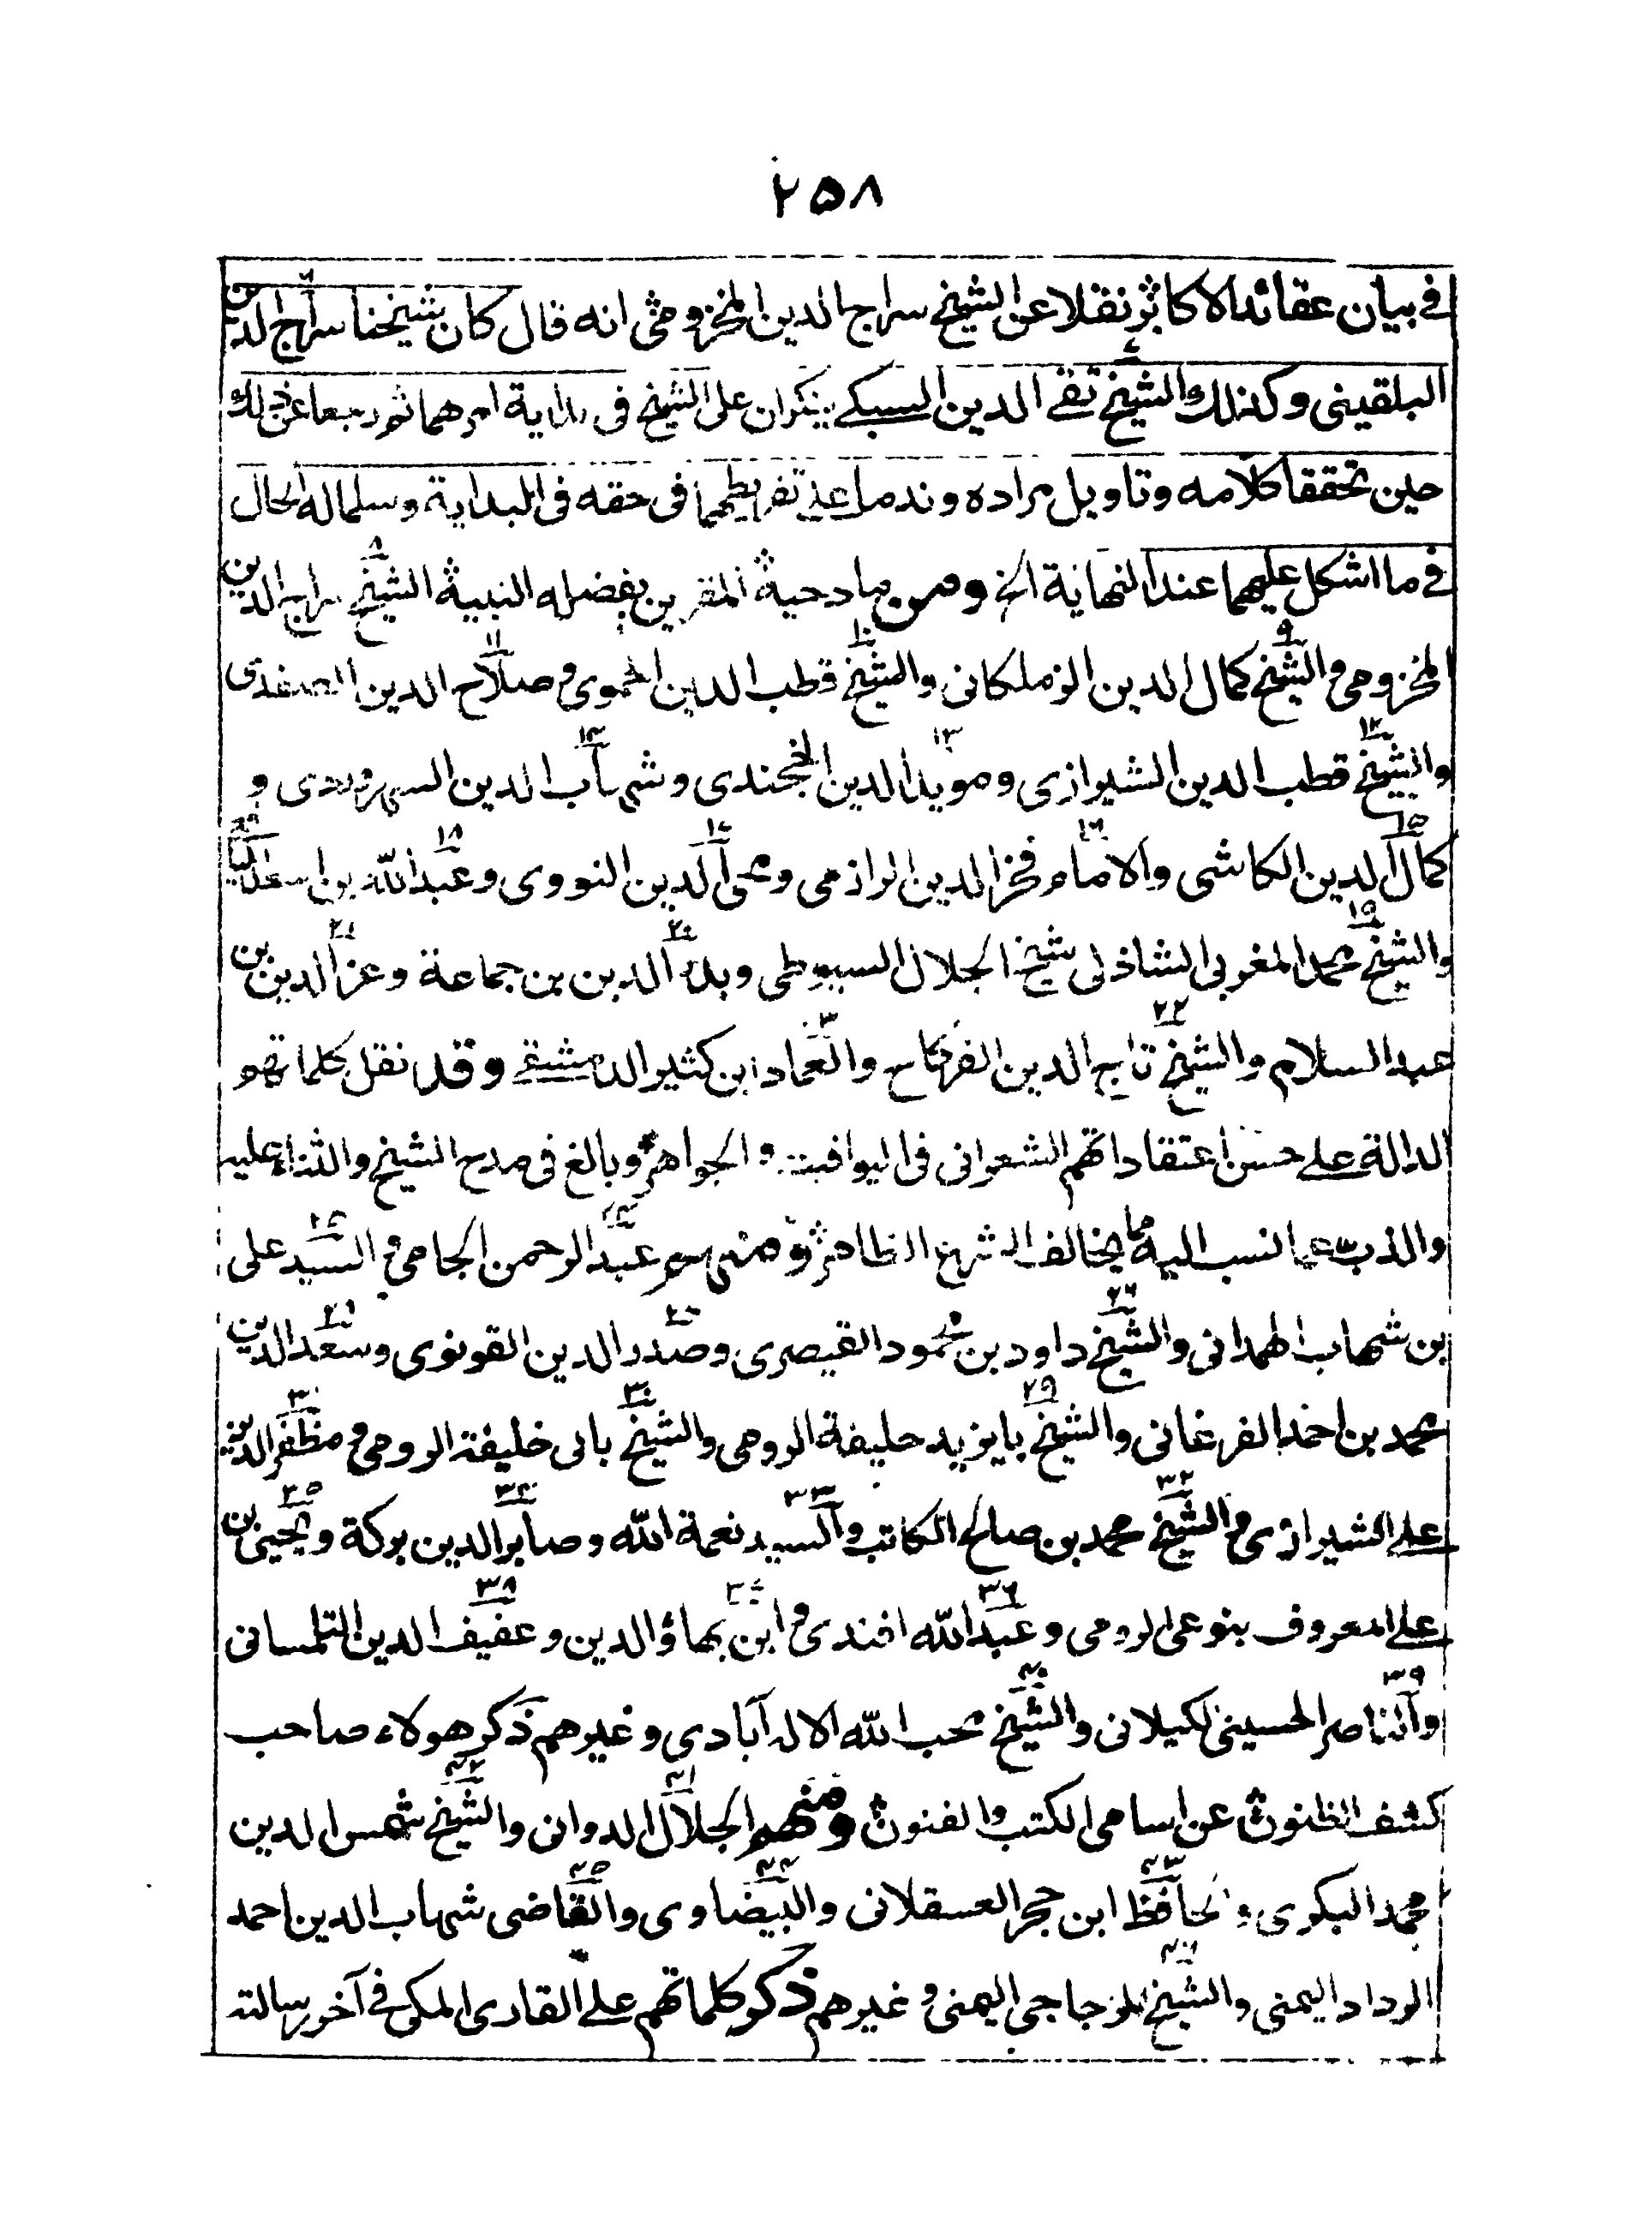 ٢٥٨
في بيان عقائد الاكابر نقلا عن الشيخ سراج الدين المخزومي انه قال كان شيخنا سراج الدين
البلقيني وكذلك الشيخ تقي الدين السبكي ينكران على الشيخ في بداية امرهما ثم رجعا عن ذلك
حين تحققا كلامه وتاويل مراده وندما على تفريطهما في حقه في البداية وسلما له الحال
في ما اشكل عليهما عند النهاية الخ ومن مادحيه المقرين بفضله النبيه الشيخ سراج الدين
المخزومي والشيخ كمال الدين الزملكاني والشيخ قطب الدين الحموي وصلاح الدين الصفدي
والشيخ قطب الدين الشيرازي ومويد الدين الخجندي وشهاب الدين السهروردي و
كمال الدين الكاشي والامام فخر الدين الرازي ومحي الدين النووي وعبد الله بن اسعد اليافعي
والشيخ محمد المغربي الشاذلي شيخ الجلال السيوطي وبدر الدين بن جماعة وعز الدين بن
عبد السلام والشيخ تاج الدين الفركاح والعماد ابن كثير الدمشقي وقد نقل كلماتهم
الدالة على حسن اعتقاداتهم الشعراني في اليواقيت والجواهر وبالغ في مدح الشيخ والثناء عليه
والذب عما نسب اليه مما يخالف الشرع الظاهر ومنهم عبد الرحمن الجامي والسيد على
بن شهاب الهمداني والشيخ داود بن محمود القيصري وصدر الدين القونوي وسعد الدين
محمد بن احمد الفرغاني والشيخ بايزيد خليفة الرومي والشيخ بالي خليفة الرومي ومظفر الدين
على الشيرازي والشيخ محمد بن صالح الكاتب والسيد نعمة الله وصابر الدين بركة ويحيى بن
على المعروف بنوعي الرومي وعبد الله افندي وابن بهاؤ الدين وعفيف الدين التلمساني
والناصر الحسيني الكيلاني والشيخ محب الله الاله آبادي وغيرهم ذكر هولاء صاحب
كشف الظنون عن اسامي الكتب والفنون ومنهم الجلال الدواني والشيخ شمس الدين
محمد البكري والحافظ ابن حجر العسقلاني والبيضاوي والقاضي شهاب الدين احمد
الرداد اليمني والشيخ المزجاجي اليمني وغيرهم ذكر كلماتهم على القاري المكي في آخر رسالته